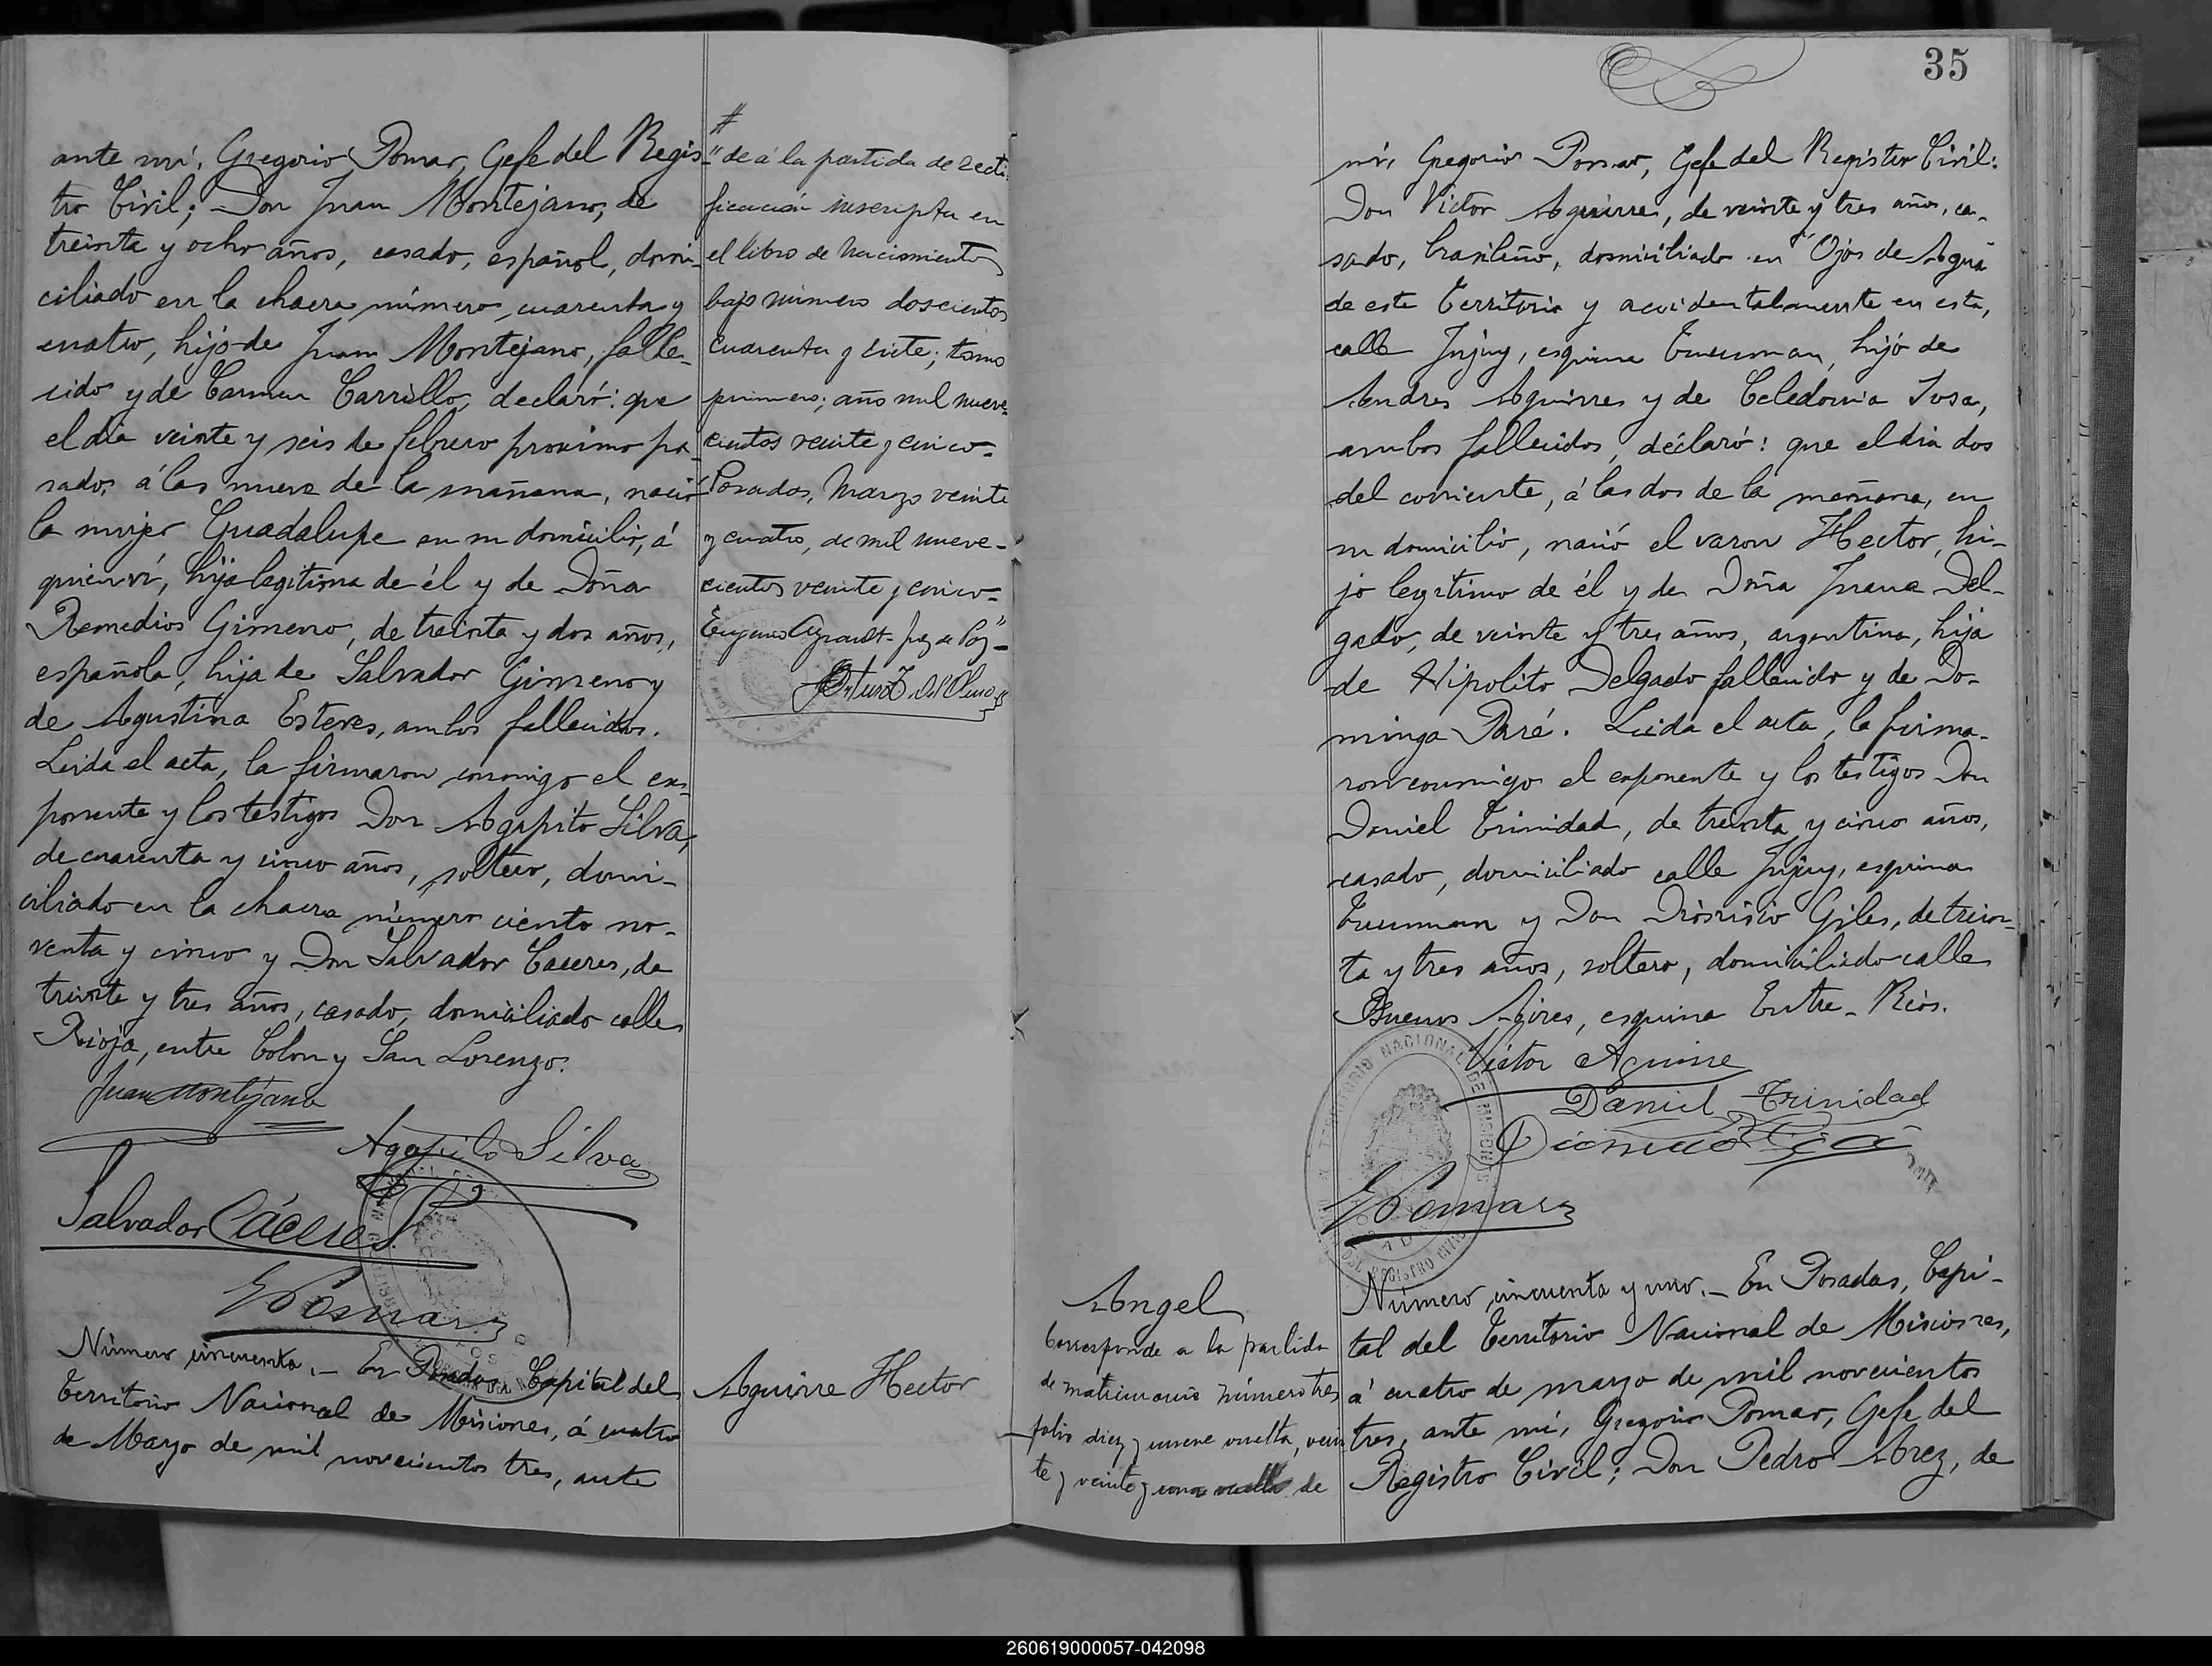 ante mí, Gregorio Pomar, Gefe del Regis-
tro Civil; Don Juan Montejano, de
treinta y ocho años, casado, español, domi-
ciliado en la chacra número cuarenta y
cuatro, hijo de Juan Montejano, falle-
cido y de Carmen Carrillo, declaró: que
el día veinte y seis de febrero proximo pa-
sado, á las nueve de la mañana, nació
la mujer Guadalupe en su domicilio, á
quien ví, hija legitima de él y de Doña
Remedios Gimeno, de treinta y dos años,
española, hija de Salvador Gimeno y
de Agustina Esteves, ambos fallecidos.
Leida el acta, la firmaron conmigo el ex-
ponente y los testigos Don Agapito Silva,
de cuarenta y cinco años, soltero, domi-
ciliado en la chacra número ciento no-
venta y cinco y Don Salvador Caceres, de
treinta y tres años, casado, domiciliado calle
Rioja, entre Colon y San Lorenzo.
Juan Montejano
Agapito Silva
Salvador Cáceres
GPomar
Número cincuenta.- En Posadas, Capital del
Territorio Nacional de Misiones, á cuatro
de Marzo de mil novecientos tres, ante
#
"de á la partida de recti-
ficación inscripta en
el libro de Nacimientos
bajo número doscientos
cuarenta y siete; tomo
primero; año mil nueve-
cientos veinte y cinco-
Posadas, Marzo veinte
y cuatro, de mil nueve-
cientos veinte y cinco-
Juez de Paz"-
Aguirre Hector
35
mí, Gregorio Pomar, Gefe del Registro Civil:
Don Victor Aguirre, de veinte y tres años, ca-
sado, brasileño, domiciliado en "Ojos de Agua"
de este Territorio y accidentalmente en esta,
calle Jujuy, esquina Tucuman, hijo de
Andres Aguirres y de Celedonia Sosa,
ambos fallecidos, declaró: que el dia dos
del corriente, á las dos de la mañana, en
su domicilio, nació el varon Hector, hi-
jo legitimo de él y de Doña Juana Del-
gado, de veinte y tres años, argentina, hija
de Hipolito Delgado fallecido y de Do-
minga Paré. Leida el acta, la firma-
ron conmigo el exponente y los testigos Don
Daniel Trinidad, de treinta y cinco años,
casado, domiciliado calle Jujuy, esquina
Tucuman y Don Dionisio Giles, de trein-
ta y tres años, soltero, domiciliado calle
Buenos Aires, esquina Entre-Rios.
Victor Aguirre
Daniel Trinidad
GPomar
Angel
Corresponde a la partida
de matrimonio número tres
folio diez y nueve vuelta, vein
te y veinte y una vuelta de
Número cincuenta y uno.- En Posadas, Capi-
tal del Territorio Nacional de Misiones,
á cuatro de marzo de mil novecientos
tres, ante mí, Gregorio Pomar, Gefe del
Registro Civil; Don Pedro Arez, de
260619000057-042098